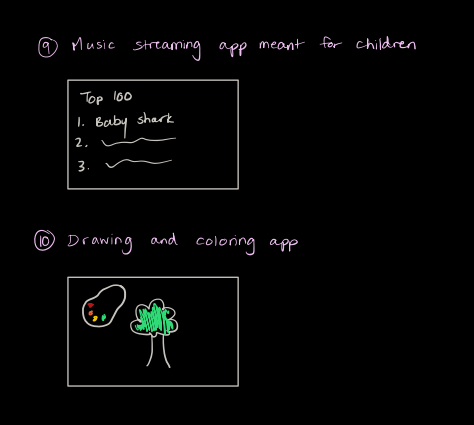 9 Music streaming app meant for children
Top 100
1. Baby shark
2.
3.
10 Drawing and coloring app